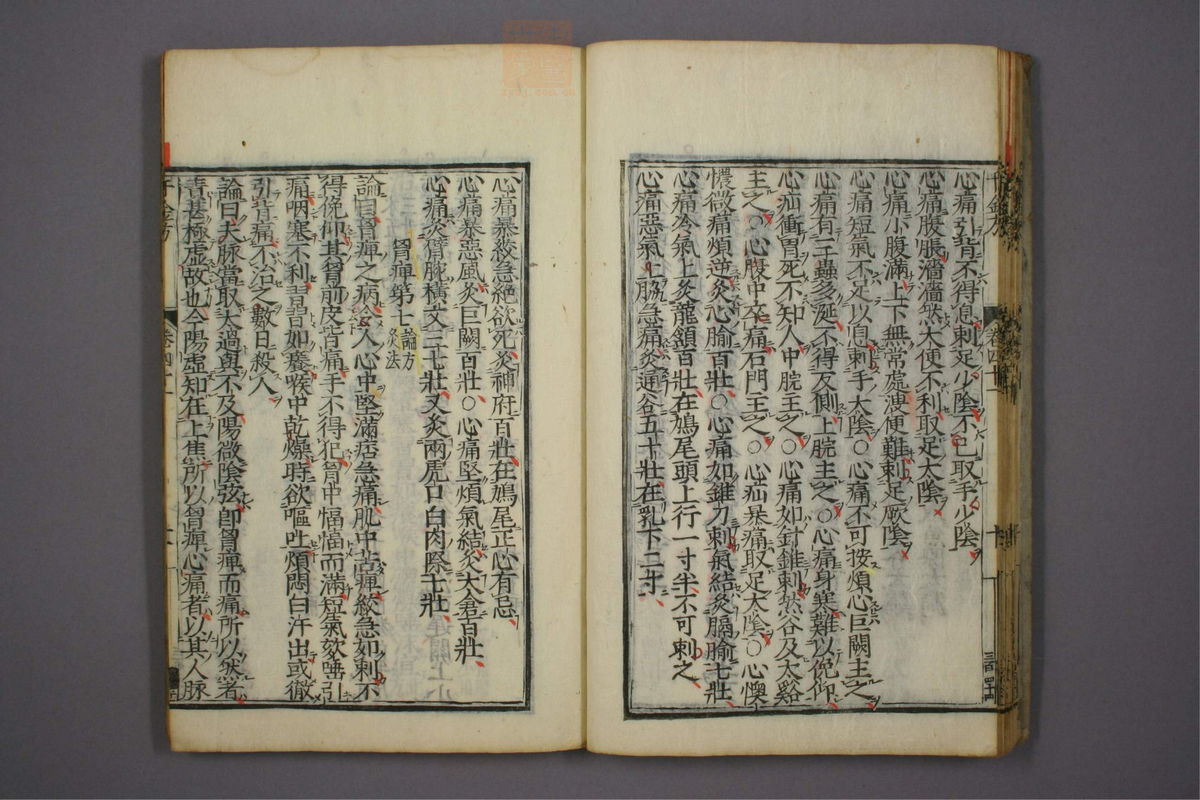 心痛引背不得息刺足少陰不已取手少陰
心痛腹脹濇濇然大便不利取足太陰
心痛小腹滿上下無常處溲便難刺足厥陰
心痛短氣不足以息刺手太陰○心痛不可按煩心巨闕主之
心痛有三蟲多涎不得反側上脘主之○心痛身寒難以俛仰
心疝衝冒死不知人中脘主之○心痛如針錐刺然谷及太谿
主之○心腹中卒痛石門主之○心疝暴痛取足太陰○心懊
憹微痛煩逆灸心腧百壯○心痛如錐刀刺氣結灸膈腧七壯
心痛冷氣上灸龍頷百壯在鳩尾頭上行一寸半不可刺之
心痛惡氣上脇急痛灸通谷五十壯在乳下二寸
心痛暴絞急絶欲死灸神府百壯在鳩尾正心有忌
心痛暴惡風灸巨闕百壯○心痛堅煩氣結灸太倉百壯
心痛灸臂腕橫文三七壯又灸兩虎口白肉際七壯
胷痺第七論方灸法
論曰胷痺之病令人心中堅滿痞急痛肌中苦痺絞急如刺不
得俛仰其胷前皮皆痛手不得犯胷中愊愊而滿短氣欬唾引
痛咽塞不利習習如癢喉中乾燥時欲嘔吐煩悶自汗出或徹
引背痛不治之數日殺人
論曰夫脉當取太過與不及陽微陰弦即胷痺而痛所以然者
責其極虛故也今陽虛知在上焦所以胷痺心痛者以其人脉